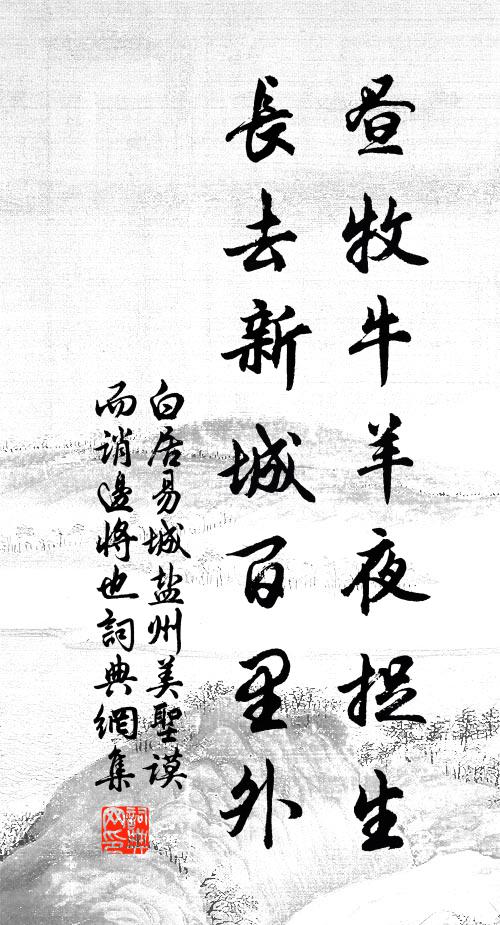 昼牧牛羊夜捉生
長去新城百里外
白居易城盐州美聖谟
而诮邊将也詞典網集